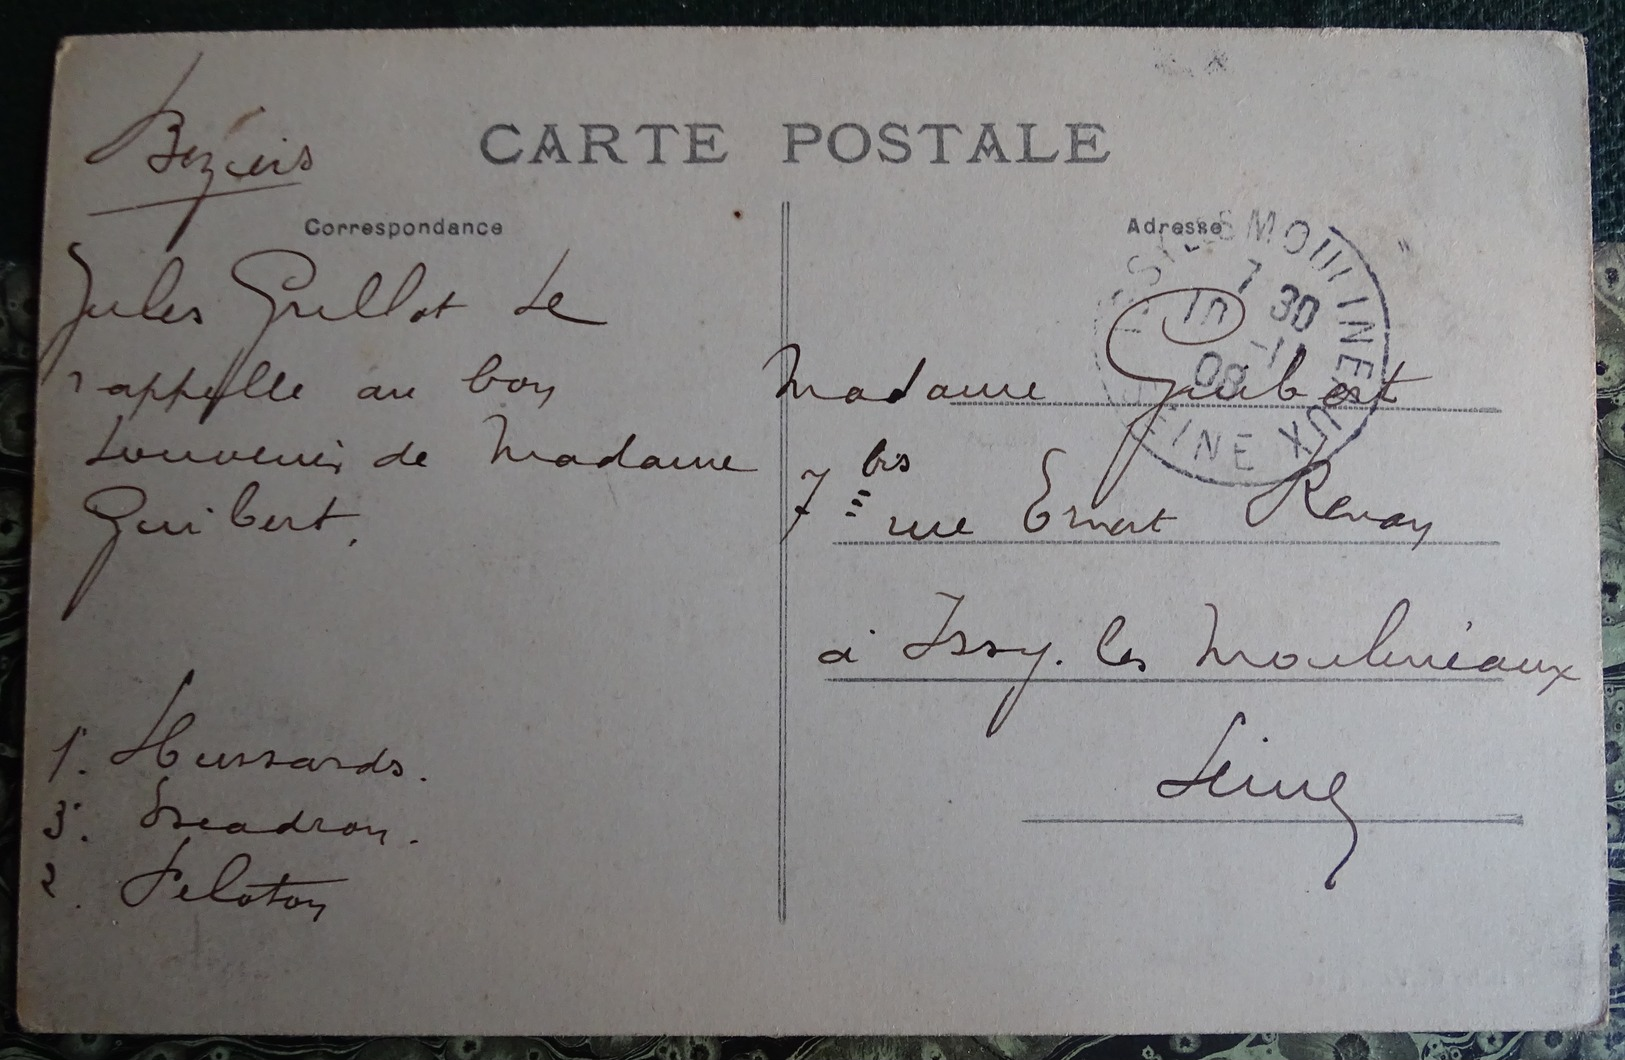 CARTE POSTALE
Béziers
Correspondance
Jules Grillot se
rappelle au bon
souvenir de Madame
Guibert.
1e. Hussards.
3e. Escadron.
2. Peloton
Adresse
ISSY-LES-MOULINEAUX
7 30
10 -11
08
SEINE
Madame Guibert
7 bis rue Ernest Renan
à Issy. les Moulinéaux
Seine